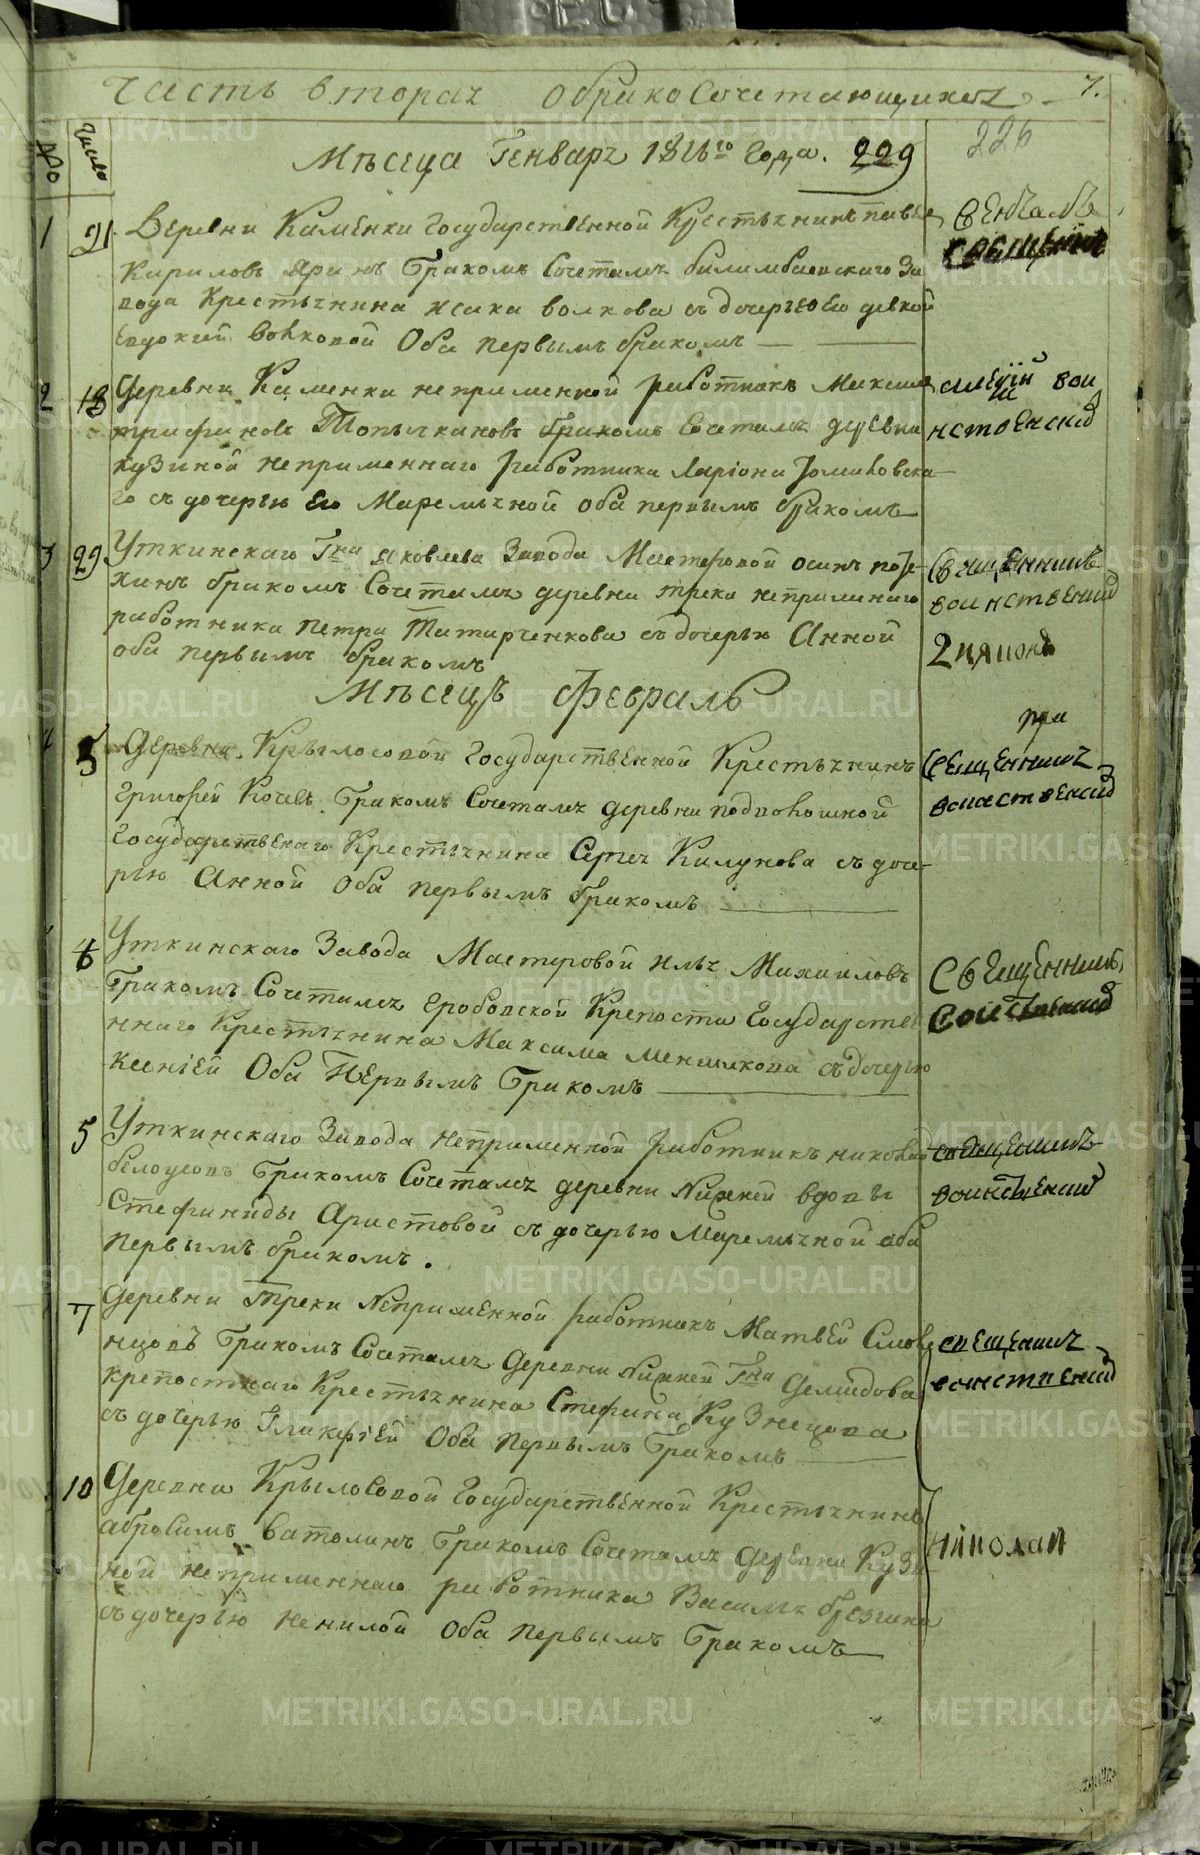 Часть вторая о бракосочетающихся
7.
Число
Мѣсеца Генваря 1816го года. 229
226
1 21 Деревни Каменки государственной крестьянинъ павел
Кириловъ Яринъ браком сочетался билимбаевского За
вода крестьянина исака волкова съ дочерью его девкой
Евдокией волковой Оба первымъ бракомъ
венчалъ
священник
2 18 Деревни Каменки непременной работникъ Максим
трифановъ Топычкановъ браком сочетался деревни
кузиной непременнаго работника Лариона
го съ дочерью Его Маремьяной оба первымъ бракомъ
алексий вои
нственский
3 29 Уткинскаго Гна Яковлева Завода Мастеровой осипъ
хинъ бракомъ Сочетался деревни треки непременнаго
работника Петра Татарченкова съ дочерью Анной
оба первымъ бракомъ
Священникъ
воинственский
Мѣсецъ Февраль
5 Деревни Крылосовой государственной Крестьянинъ
Григорей Кочевъ Бракомъ Сочетался деревни подволошной
Государственаго Крестьянина Сергея Калунова съ доче
рью Анной Оба первымъ бракомъ
при
Священникъ
воинственский
6 Уткинскаго Завода Мастеровой Илья Михаиловъ
Бракомъ Сочетался Гробовской Крепости Государстве
ннаго Крестьянина Максима Меншикова съ дочерью
ксенией Оба Первымъ Бракомъ
Священникъ
5 Уткинскаго Завода непременной работникъ николай
белоусовъ Бракомъ Сочетался деревни Нижней вдовы
Стефаниды Аристовой съ дочерью Маремьяной оба
первымъ бракомъ.
священникъ
воинственский
7 Деревни Треки Непременной работникъ Матвей
нцовъ Бракомъ Сочетался Деревни Нижней Гна Демидова
крепостнаго Крестьянина Стефана Кузнецова
съ дочерью Гликерией Оба Первымъ Бракомъ
священникъ
воинственский
10 Деревни Крылосовой Государственной Крестьянинъ
абросимъ Ватолинъ Бракомъ Сочетался Деревни Кузи
ной непременнаго работника Василья
съ дочерью Ненилой Оба первымъ Бракомъ
николай
METRIKI.GASO-URAL.RU